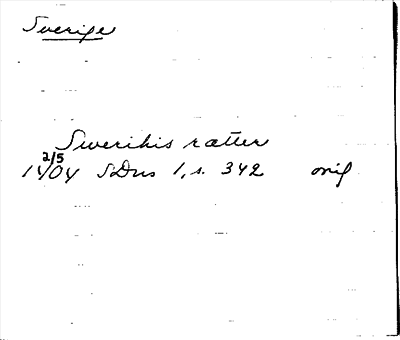 Sverige
Swerikis ratter
2/5
1404 SDns 1, s. 342 orig